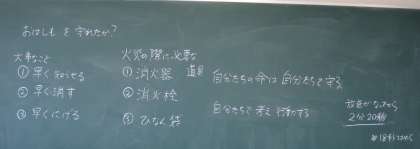 おはしも を守れたか?
大事なこと
① 早く知らせる
② 早く消す
③ 早くにげる
火災の際に必要な
道具
① 消火器
② 消火栓
③ ひなん袋
自分たちの命は 自分たちで守る
自分たちで考え 行動する
放送がなってから
2分20秒